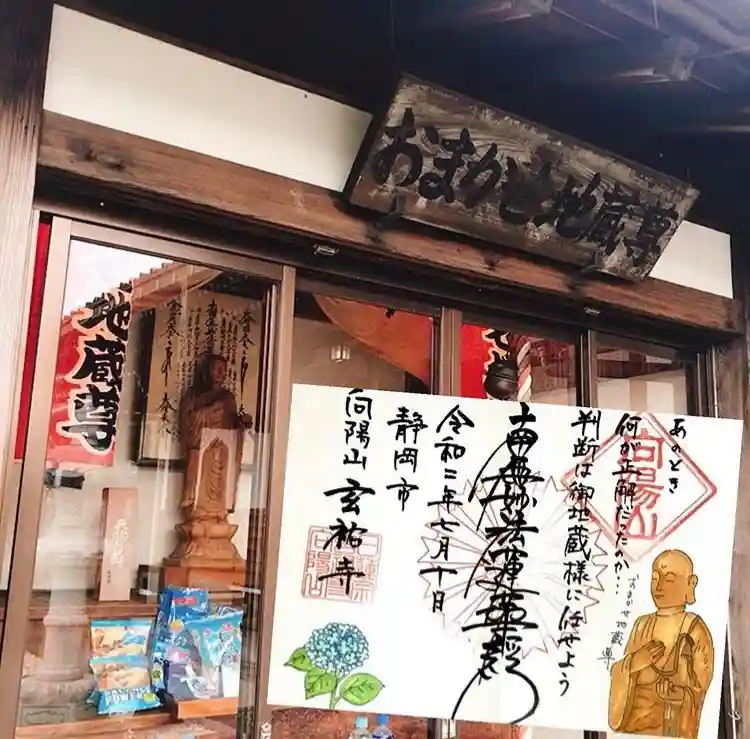 おまかせ地蔵尊
地蔵尊
地
あのとき
何が正解だったのか…
判断は御地蔵様に任せよう
おまかせ地蔵尊
向陽山
南無妙法蓮華経
令和二年七月十日
静岡市
向陽山 玄祐寺